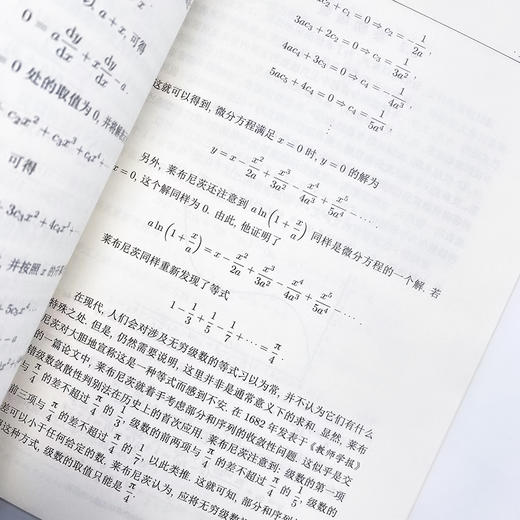 以 a + x, 可得
0 = a dy/dx + x dy/dx − a.
= 0 处的取值为 0, 并将解
x + c₂x² + c₃x³ + c₄x⁴ + ⋯
可得
+ 3c₃x² + 4c₄x³
, 并按照 x 的
2ac₂ + c₁ = 0 ⇒ c₂ = −1/(2a),
3ac₃ + 2c₂ = 0 ⇒ c₃ = 1/(3a²),
4ac₄ + 3c₃ = 0 ⇒ c₄ = −1/(4a³),
5ac₅ + 4c₄ = 0 ⇒ c₅ = 1/(5a⁴),
⋮
这就可以得到, 微分方程满足 x = 0 时, y = 0 的解为
y = x − x²/(2a) + x³/(3a²) − x⁴/(4a³) + x⁵/(5a⁴) − ⋯.
另外, 莱布尼茨还注意到 a ln(1 + x/a) 同样是微分方程的一个解. 若
x = 0, 这个解同样为 0. 由此, 他证明了
a ln(1 + x/a) = x − x²/(2a) + x³/(3a²) − x⁴/(4a³) + x⁵/(5a⁴) − ⋯.
莱布尼茨同样重新发现了等式
1 − 1/3 + 1/5 − 1/7 + ⋯ = π/4.
在现代, 人们会对涉及无穷级数的等式习以为常, 并不认为它们有什么
特殊之处. 但是, 仍然需要说明, 这里并非是通常意义下的求和. 显然, 莱布
尼茨对大胆地宣称这是一种等式而感到不安. 在 1682 年发表于《教师学报》
的一篇论文中, 莱布尼茨就着手考虑部分和序列的收敛性问题. 这似乎是交
错级数敛散性判别法在历史上的首次应用. 莱布尼茨注意到: 级数的第一项
与 π/4 的差不超过 1/3, 级数的前两项与 π/4 的差不超过 1/5, 级数的
前三项与 π/4 的差不超过 1/7, 以此类推. 这就可知, 部分和序列
差可以小于任何给定的数. 莱布尼茨认为, 应将无穷级数
这种方式, 级数的取值只能是 π/4.